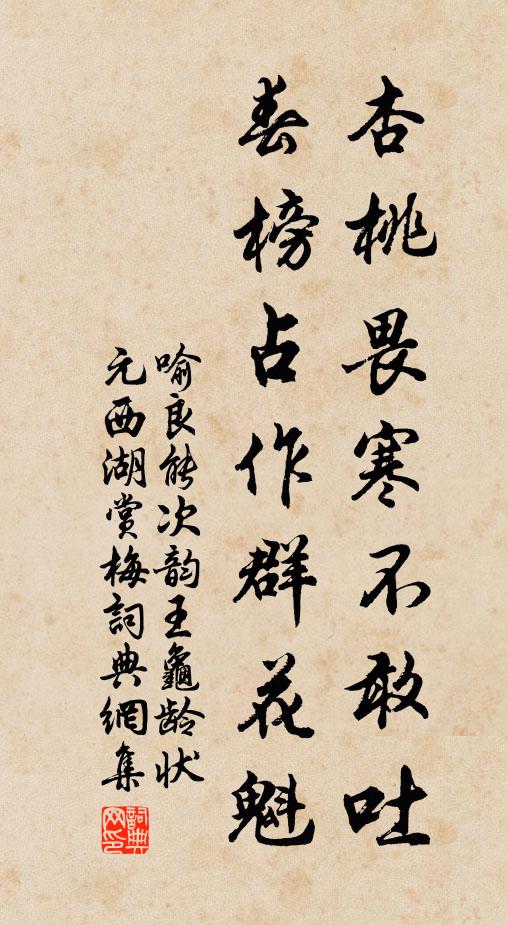 杏桃畏寒不敢吐
春榜占作群花魁
喻良能次韵王龜龄状
元西湖赏梅詞典網集
詞典
网印